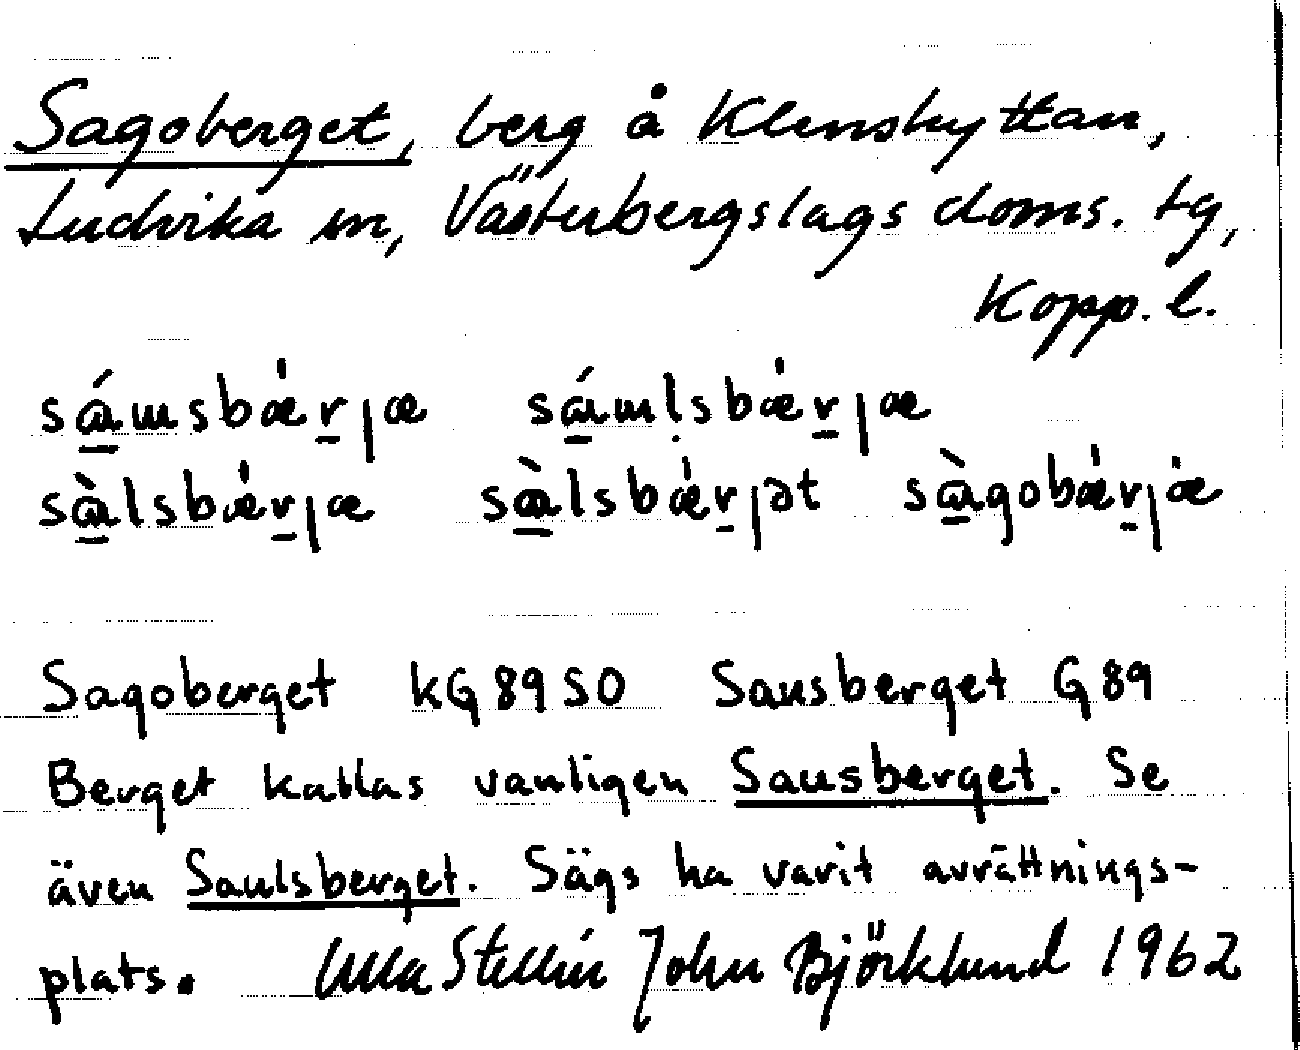 Sagoberget, berg å Klenshyttan,
Ludvika sn, Västerbergslags doms. tg,
Kopp. l.
sá̱usbǽr̲jæ sá̱uḷsbǽr̲jæ
sà̱lsbǽr̲jæ sà̱lsbǽr̲jət sà̱gobǽr̲jæ
Sagoberget kG 89 SO Sausberget G 89
Berget kallas vanligen Sausberget. Se
även Saulsberget. Sägs ha varit avrättnings-
plats. Ulla Stellin John Björklund 1962